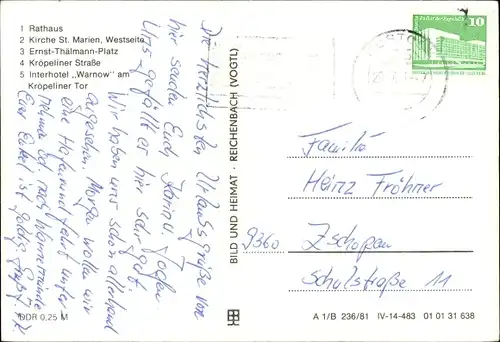 1 Rathaus
2 Kirche St. Marien, Westseite
3 Ernst-Thälmann-Platz
4 Kröpeliner Straße
5 Interhotel „Warnow" am
Kröpeliner Tor
Die herzlichsten Urlaubsgrüße von
hier senden Euch
Uns gefällt es hier sehr gut.
Wir haben uns schon allerhand
angesehen. Morgen wollen wir
eine Hafenrundfahrt unter-
nehmen
Euer Enkel ist
DDR 0,25 M
BILD UND HEIMAT · REICHENBACH (VOGTL)
10
Familie
Heinz Fröhner
9360 Zschopau
Schulstraße 11
A 1/B 236/81 IV-14-483 01 01 31 638